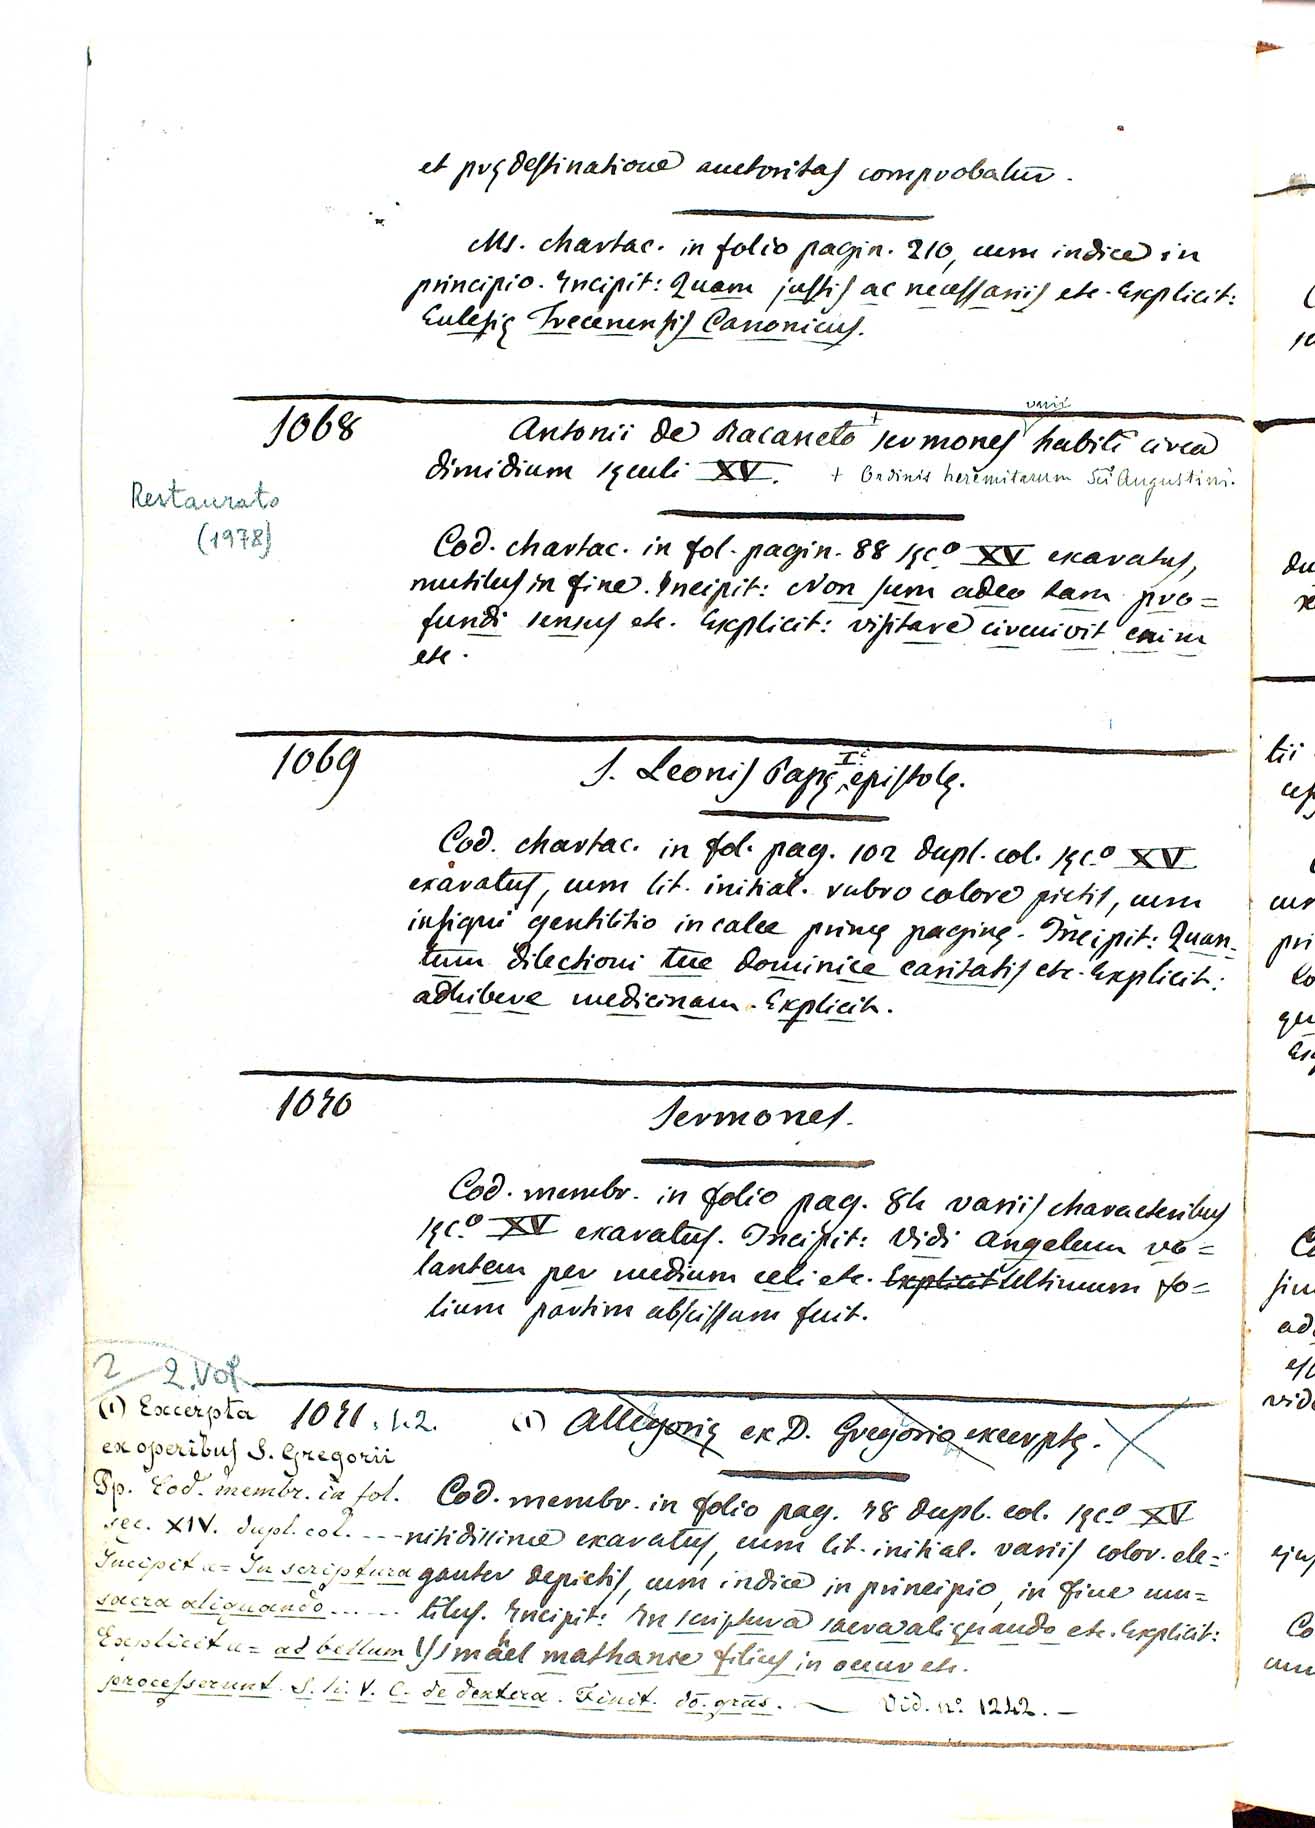 et prędestinatione auctoritas comprobatur.
Ms. chartac. in folio pagin. 210, cum indice in
principio. Incipit: Quam justis ac necessariis etc. Explicit:
Eclesię Trecenensis Canonicus.
1068
varii
Antonii de Racaneto + sermones habiti circa
dimidium sęculi XV. + Ordinis heremitarum Sti Augustini.
Restaurato
(1978)
Cod. chartac. in fol. pagin. 88 sęc.o XV exaratus,
mutilus in fine. Incipit: Non sum adeo tam pro=
fundi sensus etc. Explicit: visitare circuivit enim
etc.
1069
S. Leonis Papę I.i epistolę.
Cod. chartac. in fol. pag. 102 dupl. col. sęc.o XV
exaratus, cum lit. initial. rubro colore pictis, cum
insigni gentilitio in calce primę paginę. Incipit: Quan=
tum dilectioni tue dominice caritatis etc. Explicit:
adhibere medicinam. Explicit.
1070
Sermones.
Cod. membr. in folio pag. 84 variis characteribus
sęc.o XV exaratus. Incipit: Vidi angelum vo=
lantem per medium celi etc. Explicit Ultimum fo=
lium partim abscissum fuit.
2 2. Vol.
1071. 1.2. (1) Allegorię ex D. Gregorio excerptę.
(1) Excerpta
ex operibus S. Gregorii
Pp. Cod. membr. in fol.
sec. XIV. dupl. col. ---
Incipit = In scriptura
sacra aliquando.....
Explicit = ad bellum
processerunt. S. li. V. C. de dextera. Finit. dō. grās. — Vid. no. 1242. —
Cod. membr. in folio pag. 78 dupl. col. sęc.o XV
nitidissime exaratus, cum lit. initial. variis color. ele=
ganter depictis, cum indice in principio, in fine mu=
tilus. Incipit: In scriptura sacra aliquando etc. Explicit:
Ysmäel mathanie filius in occur etc.